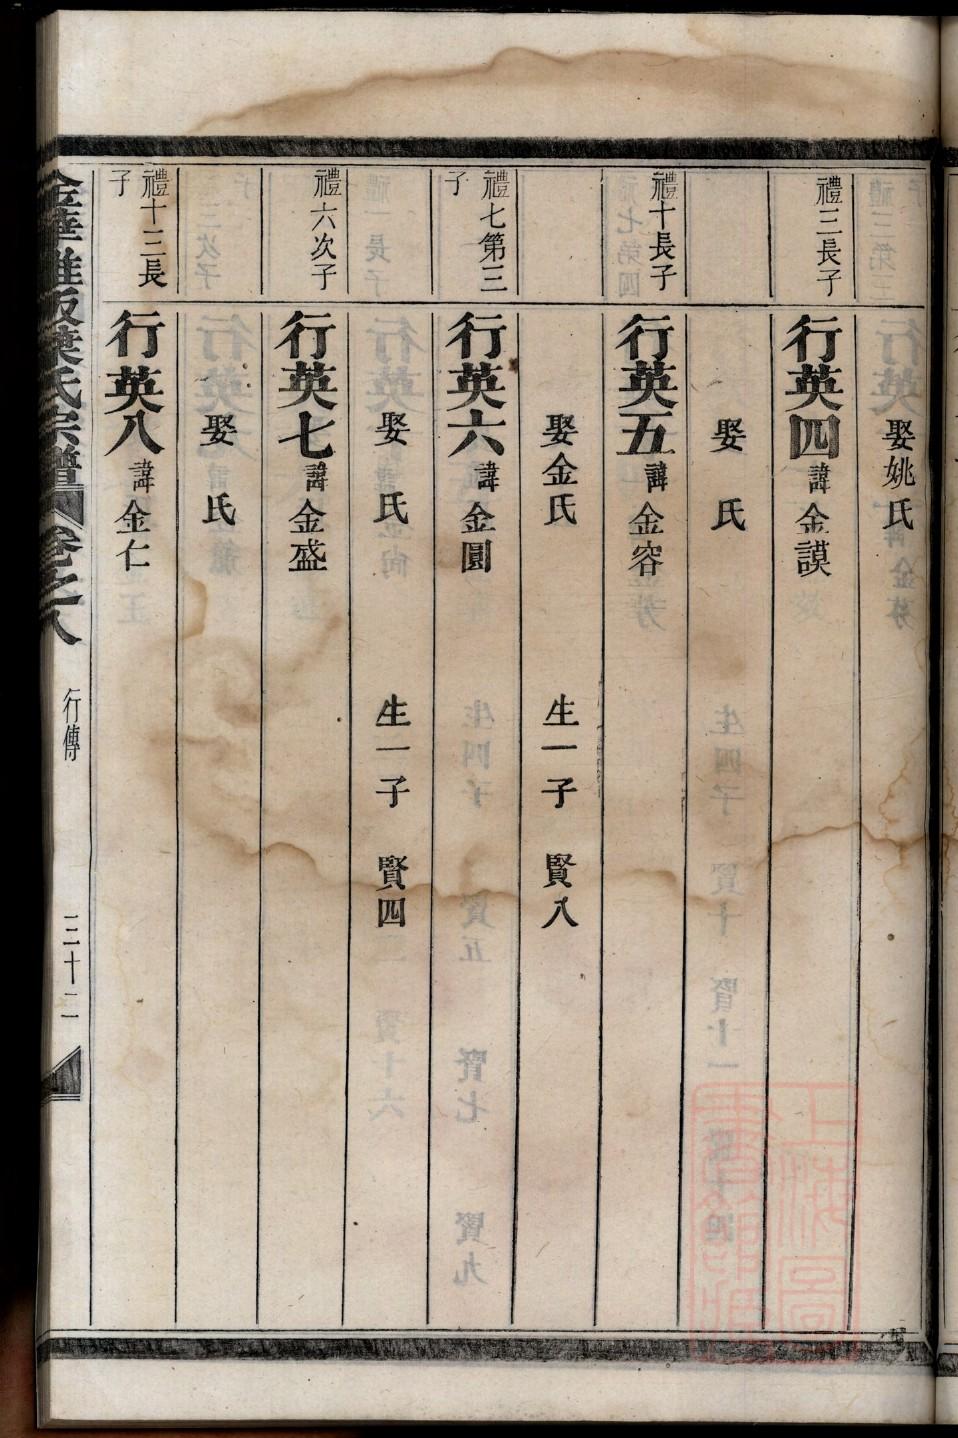 娶姚氏
禮三長子
行英四 諱金謨
娶 氏
禮十長子
行英五 諱金容
娶金氏 生一子 賢八
禮七第三子
行英六 諱金圓
娶 氏 生一子 賢四
禮六次子
行英七 諱金盛
娶 氏
禮十三長子
行英八 諱金仁
葉氏宗譜 卷之八 行傳 三十二
上海圖書館藏